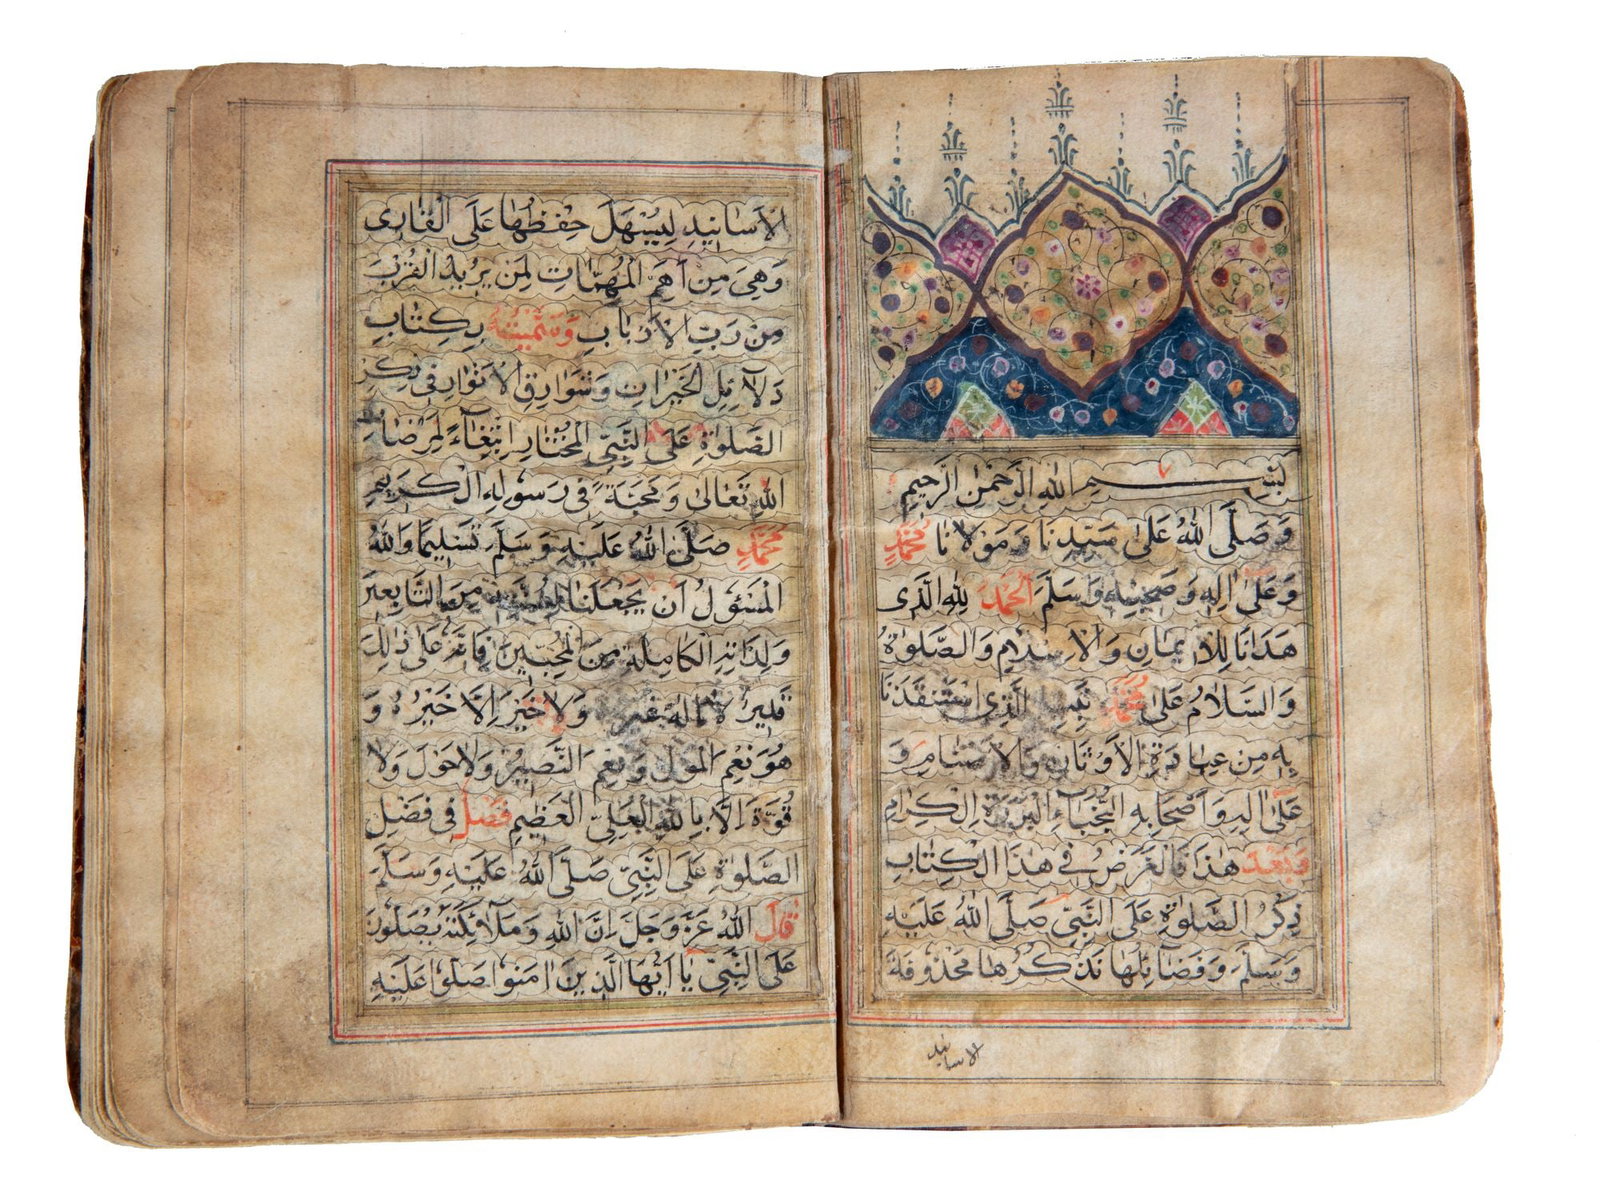 بِسْــــــمِ اللهِ الرَّحْمٰنِ الرَّحِيمِ
وَصَلَّى اللهُ عَلٰى سَيِّدِنَا وَمَوْلَانَا مُحَمَّدٍ
وَعَلٰى اٰلِهِ وَصَحْبِهِ وَسَلَّمَ اَلْحَمْدُ لِلّٰهِ الَّذِى
هَدَانَا لِلْاِيمَانِ وَالْاِسْلَامِ وَالصَّلٰوةُ
وَالسَّلَامُ عَلٰى مُحَمَّدٍ نَبِيِّهِ الَّذِى اسْتَنْقَذَنَا
بِهِ مِنْ عِبَادَةِ الْاَوْثَانِ وَالْاَصْنَامِ وَ
عَلٰى اٰلِهِ وَاَصْحَابِهِ النُّجَبَاءِ الْبَرَرَةِ الْكِرَامِ
وَبَعْدَ هٰذَا فَالْغَرَضُ فِى هٰذَا الْكِتَابِ
ذِكْرُ الصَّلٰوةِ عَلَى النَّبِيِّ صَلَّى اللهُ عَلَيْهِ
وَسَلَّمَ وَفَضَائِلُهَا نَذْكُرُهَا مَحْذُوفَةَ
الاسانيد
الْاَسَانِيدِ لِيَسْهَلَ حِفْظُهَا عَلَى الْقَارِى
وَهِىَ مِنْ اَهَمِّ الْمُهِمَّاتِ لِمَنْ يُرِيدُ الْقُرْبَ
مِنْ رَبِّ الْاَرْبَابِ وَسَمَّيْتُهُ بِكِتَابِ
دَلَآئِلِ الْخَيْرَاتِ وَشَوَارِقِ الْاَنْوَارِ فِى ذِكْرِ
الصَّلٰوةِ عَلَى النَّبِيِّ الْمُخْتَارِ ابْتِغَآءً لِمَرْضَاتِ
اللهِ تَعَالٰى وَمَحَبَّةً فِى رَسُولِهِ الْكَرِيمِ
مُحَمَّدٍ صَلَّى اللهُ عَلَيْهِ وَسَلَّمَ تَسْلِيمًا وَاللهُ
الْمَسْئُولُ اَنْ يَجْعَلَنَا لِسُنَّتِهِ مِنَ التَّابِعِينَ
وَلِذَاتِهِ الْكَامِلَةِ مِنَ الْمُحِبِّينَ فَاِنَّهُ عَلٰى ذٰلِكَ
قَدِيرٌ لَا اِلٰهَ غَيْرُهُ وَلَا خَيْرَ اِلَّا خَيْرُهُ وَ
هُوَ نِعْمَ الْمَوْلٰى وَنِعْمَ النَّصِيرُ وَلَا حَوْلَ وَلَا
قُوَّةَ اِلَّا بِاللهِ الْعَلِيِّ الْعَظِيمِ فَصْلٌ فِى فَضْلِ
الصَّلٰوةِ عَلَى النَّبِيِّ صَلَّى اللهُ عَلَيْهِ وَسَلَّمَ
قَالَ اللهُ عَزَّ وَجَلَّ اِنَّ اللهَ وَمَلَآئِكَتَهُ يُصَلُّونَ
عَلَى النَّبِيِّ يَا اَيُّهَا الَّذِينَ اٰمَنُوا صَلُّوا عَلَيْهِ